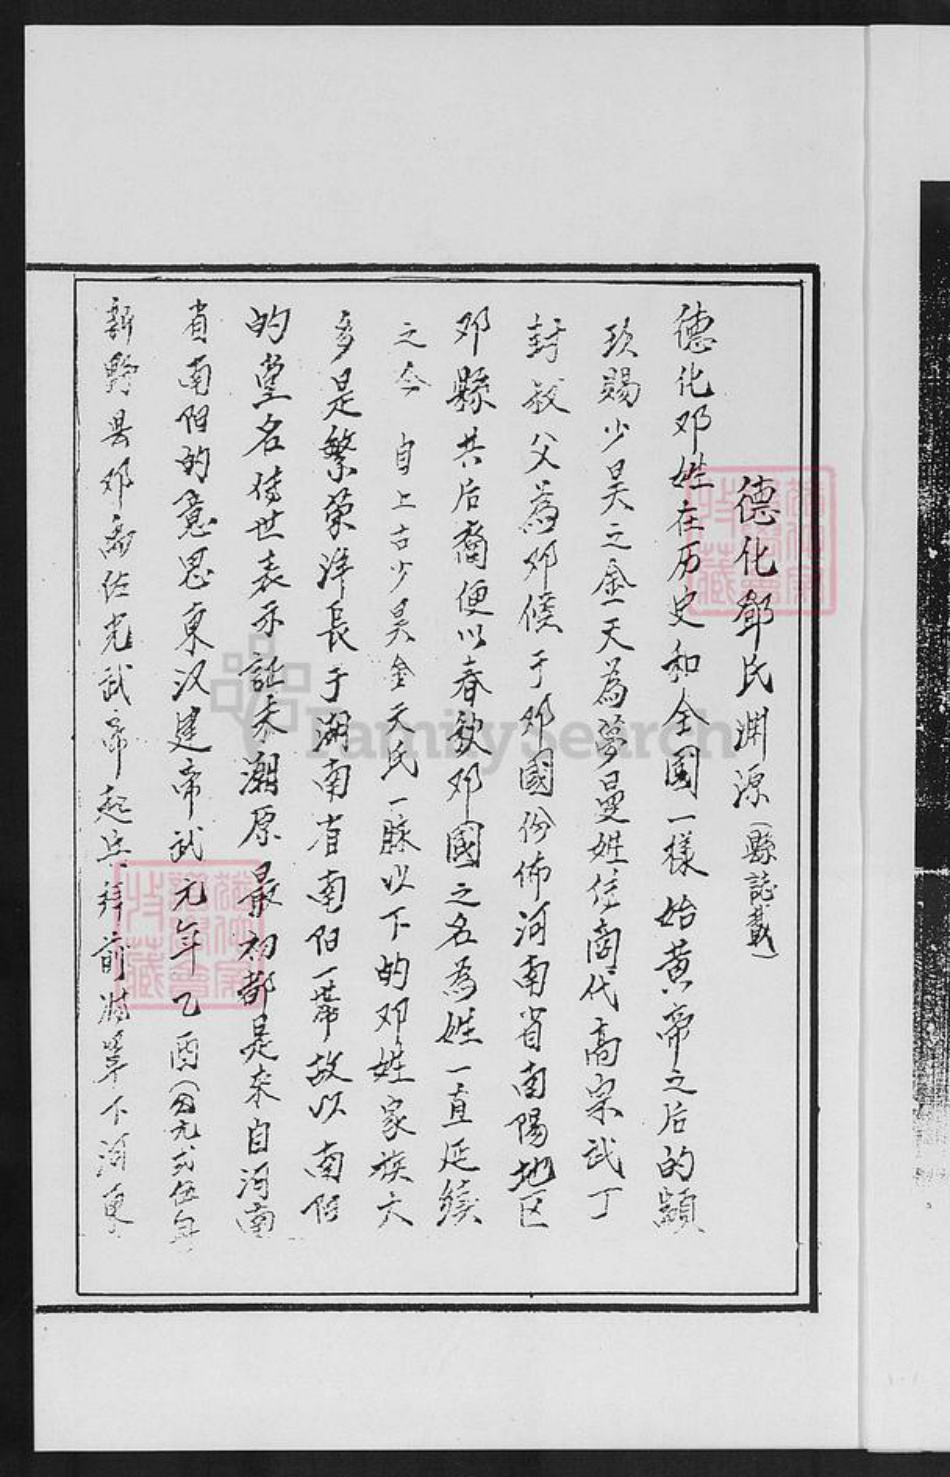 德化鄧氏渊源（縣誌載）
德化邓姓在历史和全国一樣始黄帝之后的顓
頊賜少昊之金天為 曼姓位商代高宗武丁
封叔父為邓候于邓國份佈河南省南陽地区
邓縣共后裔便以春秋邓國之名為姓一直延续
之今 自上古少昊金天氏一脉以下的邓姓家族大
多是繁荣 長于湖南省南阳一帶故以南阳
的堂名传世表示 潮原最初都是来自河南
省南阳的意思東汉建帝武元年乙酉（公元弍伍年
新野县邓禹佐光武帝起兵拜前 军下河東
FamilySearch